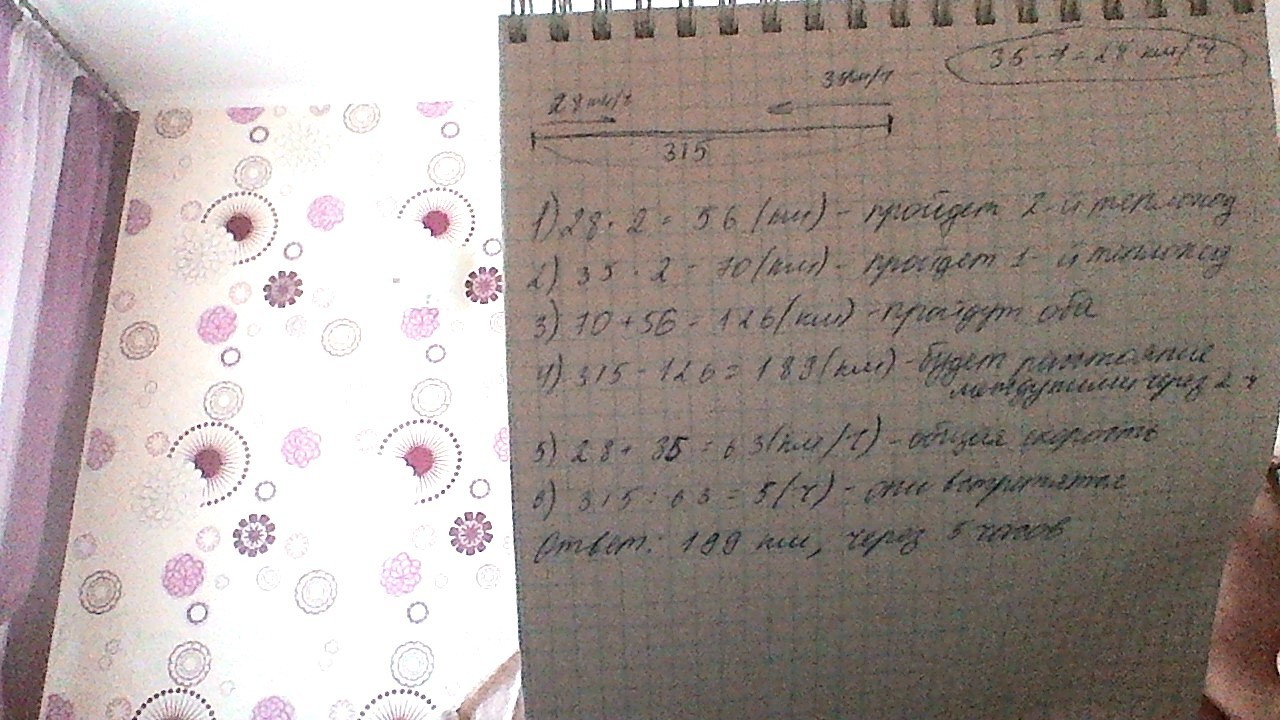 35 - 7 = 28 км/ч
28 км/ч
35км/ч
315
1) 28 · 2 = 56 (км) - пройдет 2-й теплоход
2) 35 · 2 = 70 (км) - пройдет 1-й теплоход
3) 70 + 56 = 126 (км) - пройдут оба
4) 315 - 126 = 189 (км) - будет расстояние
между ними через 2 ч
5) 28 + 35 = 63 (км/ч) - общая скорость
6) 315 : 63 = 5 (ч) - они встретятся
Ответ: 199 км, через 5 часов